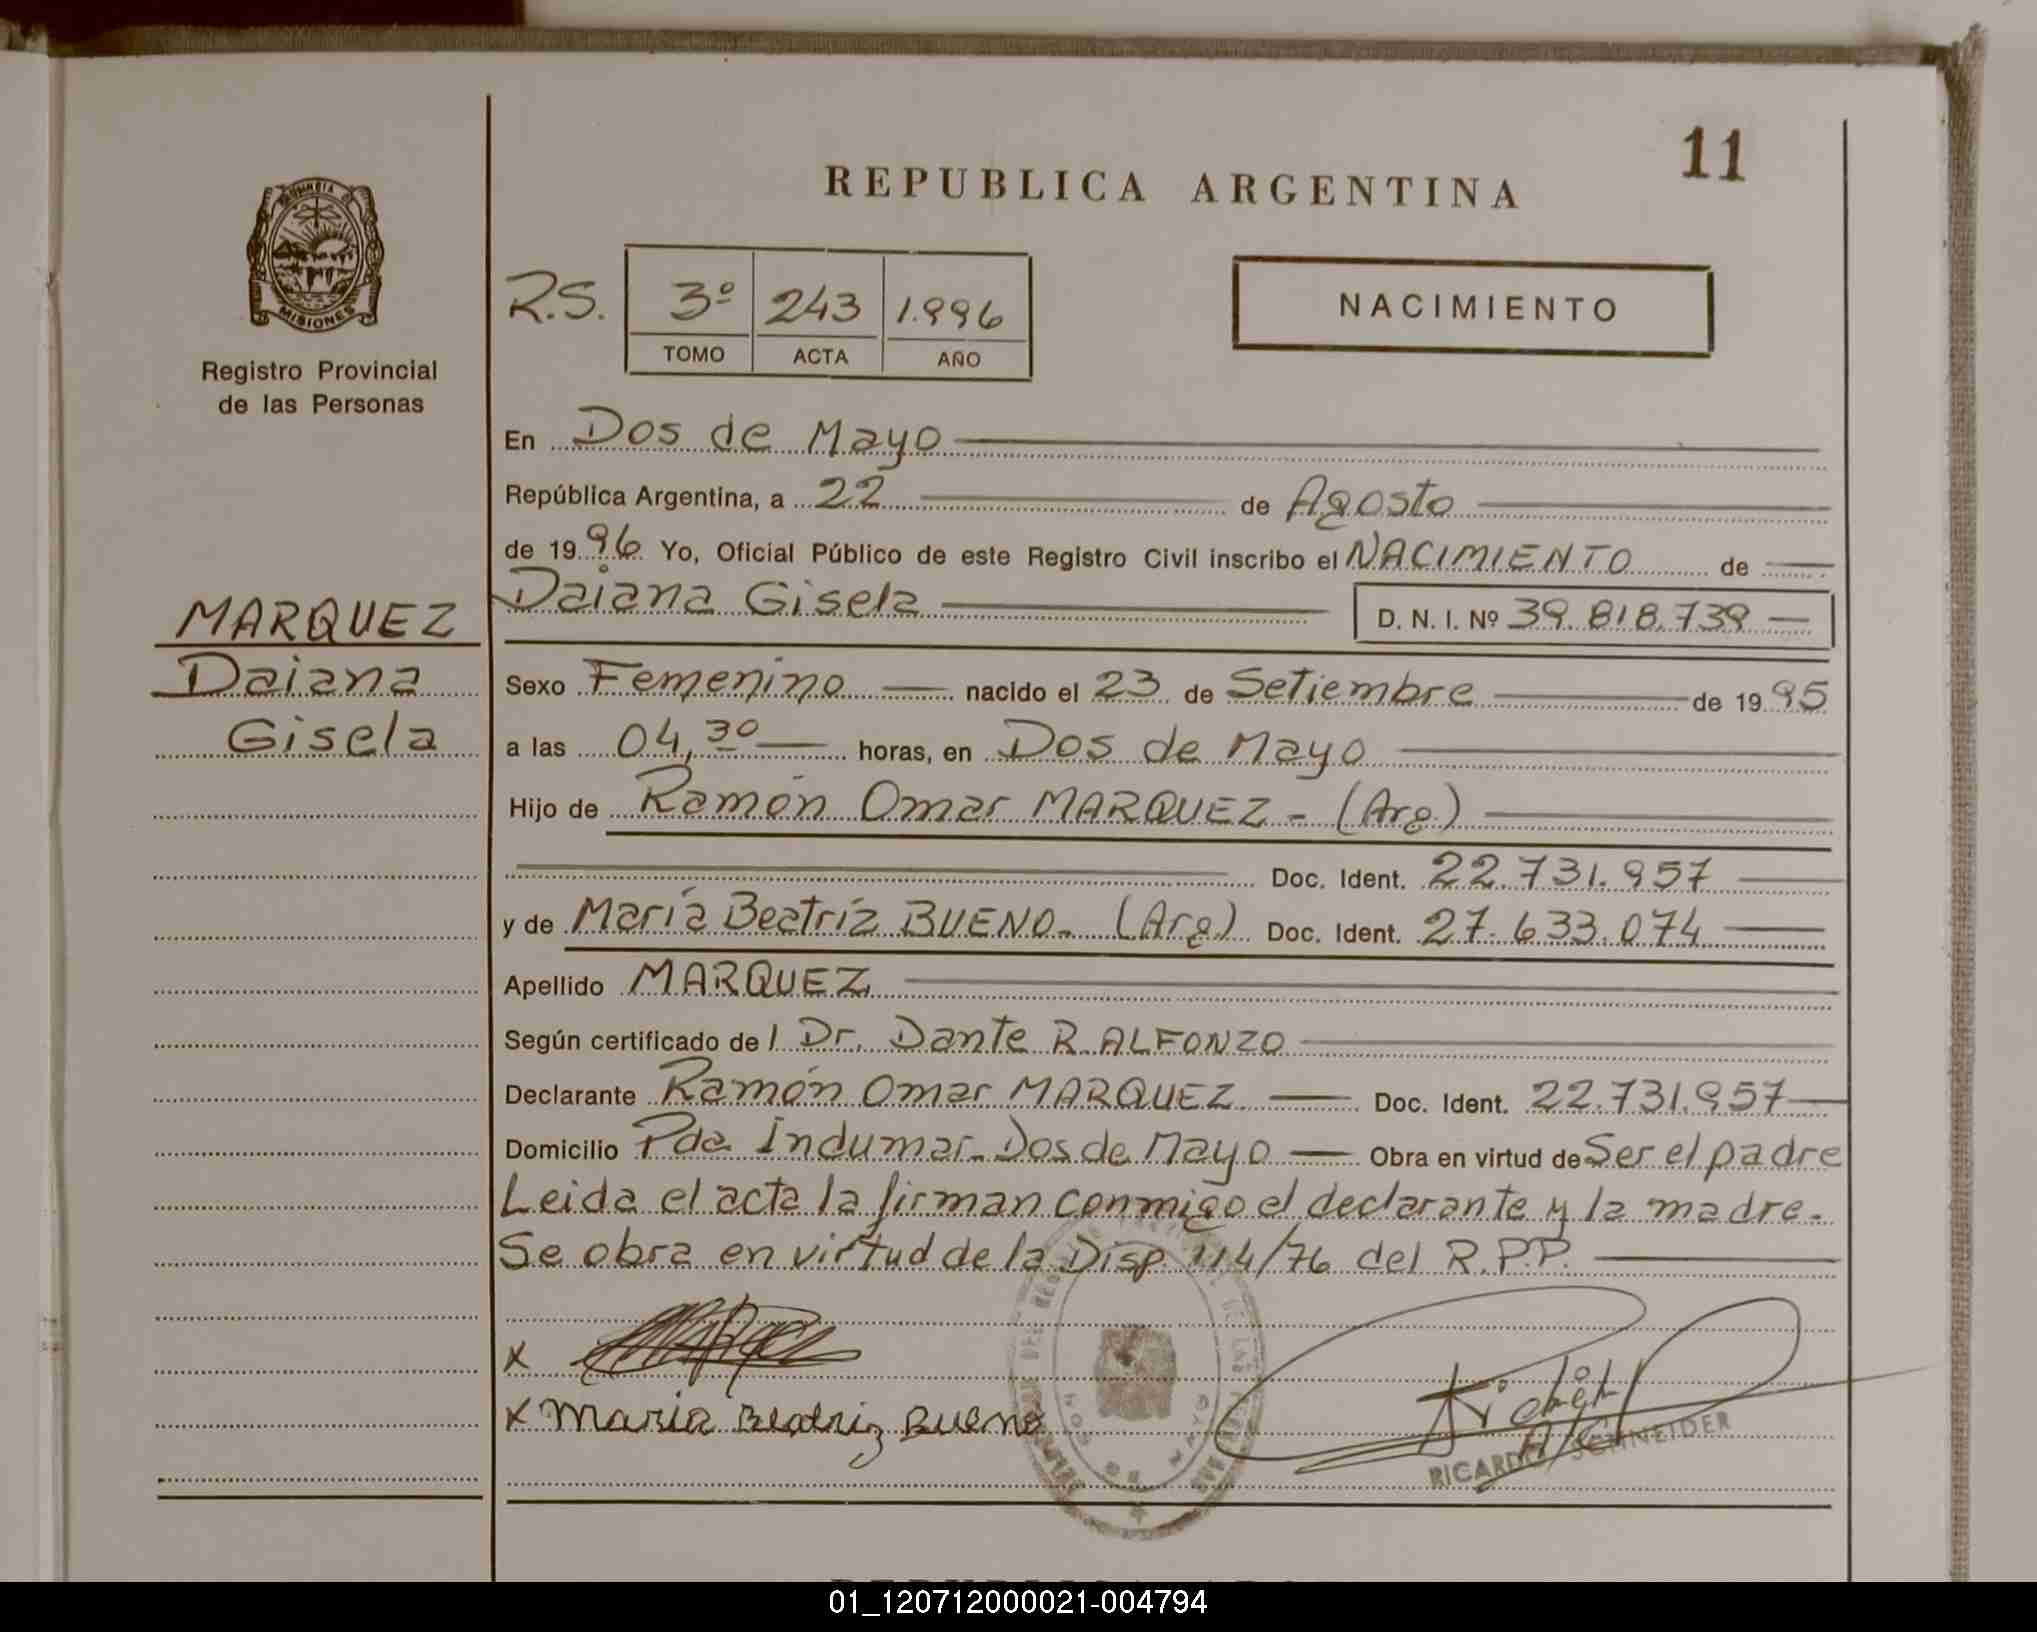 11
REPUBLICA ARGENTINA
MISIONES
Registro Provincial
de las Personas
R.S. 3º 243 1.996
TOMO ACTA AÑO
NACIMIENTO
En Dos de Mayo
República Argentina, a 22 de Agosto
de 1996 Yo, Oficial Público de este Registro Civil inscribo el NACIMIENTO de
Daiana Gisela D. N. I. Nº 39.818.739
MARQUEZ
Daiana
Gisela
Sexo Femenino nacido el 23 de Setiembre de 1995
a las 04,30 horas, en Dos de Mayo
Hijo de Ramón Omar MARQUEZ - (Arg)
Doc. Ident. 22.731.957
y de María Beatríz BUENO - (Arg) Doc. Ident. 27.633.074
Apellido MARQUEZ
Según certificado del Dr. Dante R. ALFONZO
Declarante Ramón Omar MARQUEZ Doc. Ident. 22.731.957
Domicilio Pda Indumar - Dos de Mayo Obra en virtud de Ser el padre
Leida el acta la firman conmigo el declarante y la madre.
Se obra en virtud de la Disp. 114/76 del R.P.P.
X
X Maria Beatriz Bueno
DOS DE MAYO
RICARDO SCHNEIDER
01_120712000021-004794